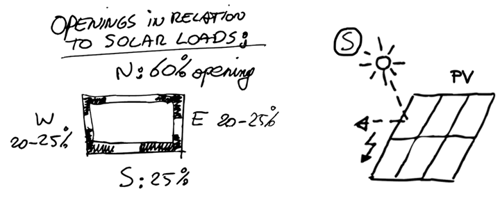 OPENINGS IN RELATION
TO SOLAR LOADS:
N: 60% opening
W
20-25%
E 20-25%
S: 25%
S
PV